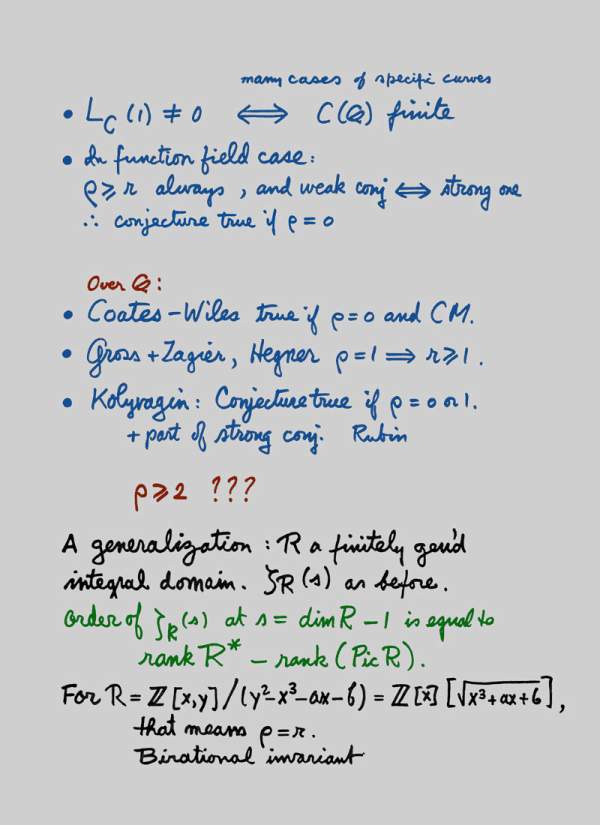 many cases of specific curves
• L_C (1) ≠ 0 ⟺ C(Q) finite
• In function field case:
ρ ⩾ r always, and weak conj ⟺ strong one
∴ conjecture true if ρ = 0
Over Q:
• Coates-Wiles true if ρ = 0 and CM.
• Gross + Zagier, Hegner ρ = 1 ⟹ r ⩾ 1.
• Kolyvagin: Conjecture true if ρ = 0 or 1.
+ part of strong conj. Rubin
ρ ⩾ 2 ???
A generalization: R a finitely gen'd
integral domain. ζ_R(s) as before.
order of ζ_R(s) at s = dim R - 1 is equal to
rank R* - rank (Pic R).
For R = Z[x,y]/(y²-x³-ax-b) = Z[x][√x³+ax+b],
that means ρ = r.
Birational invariant